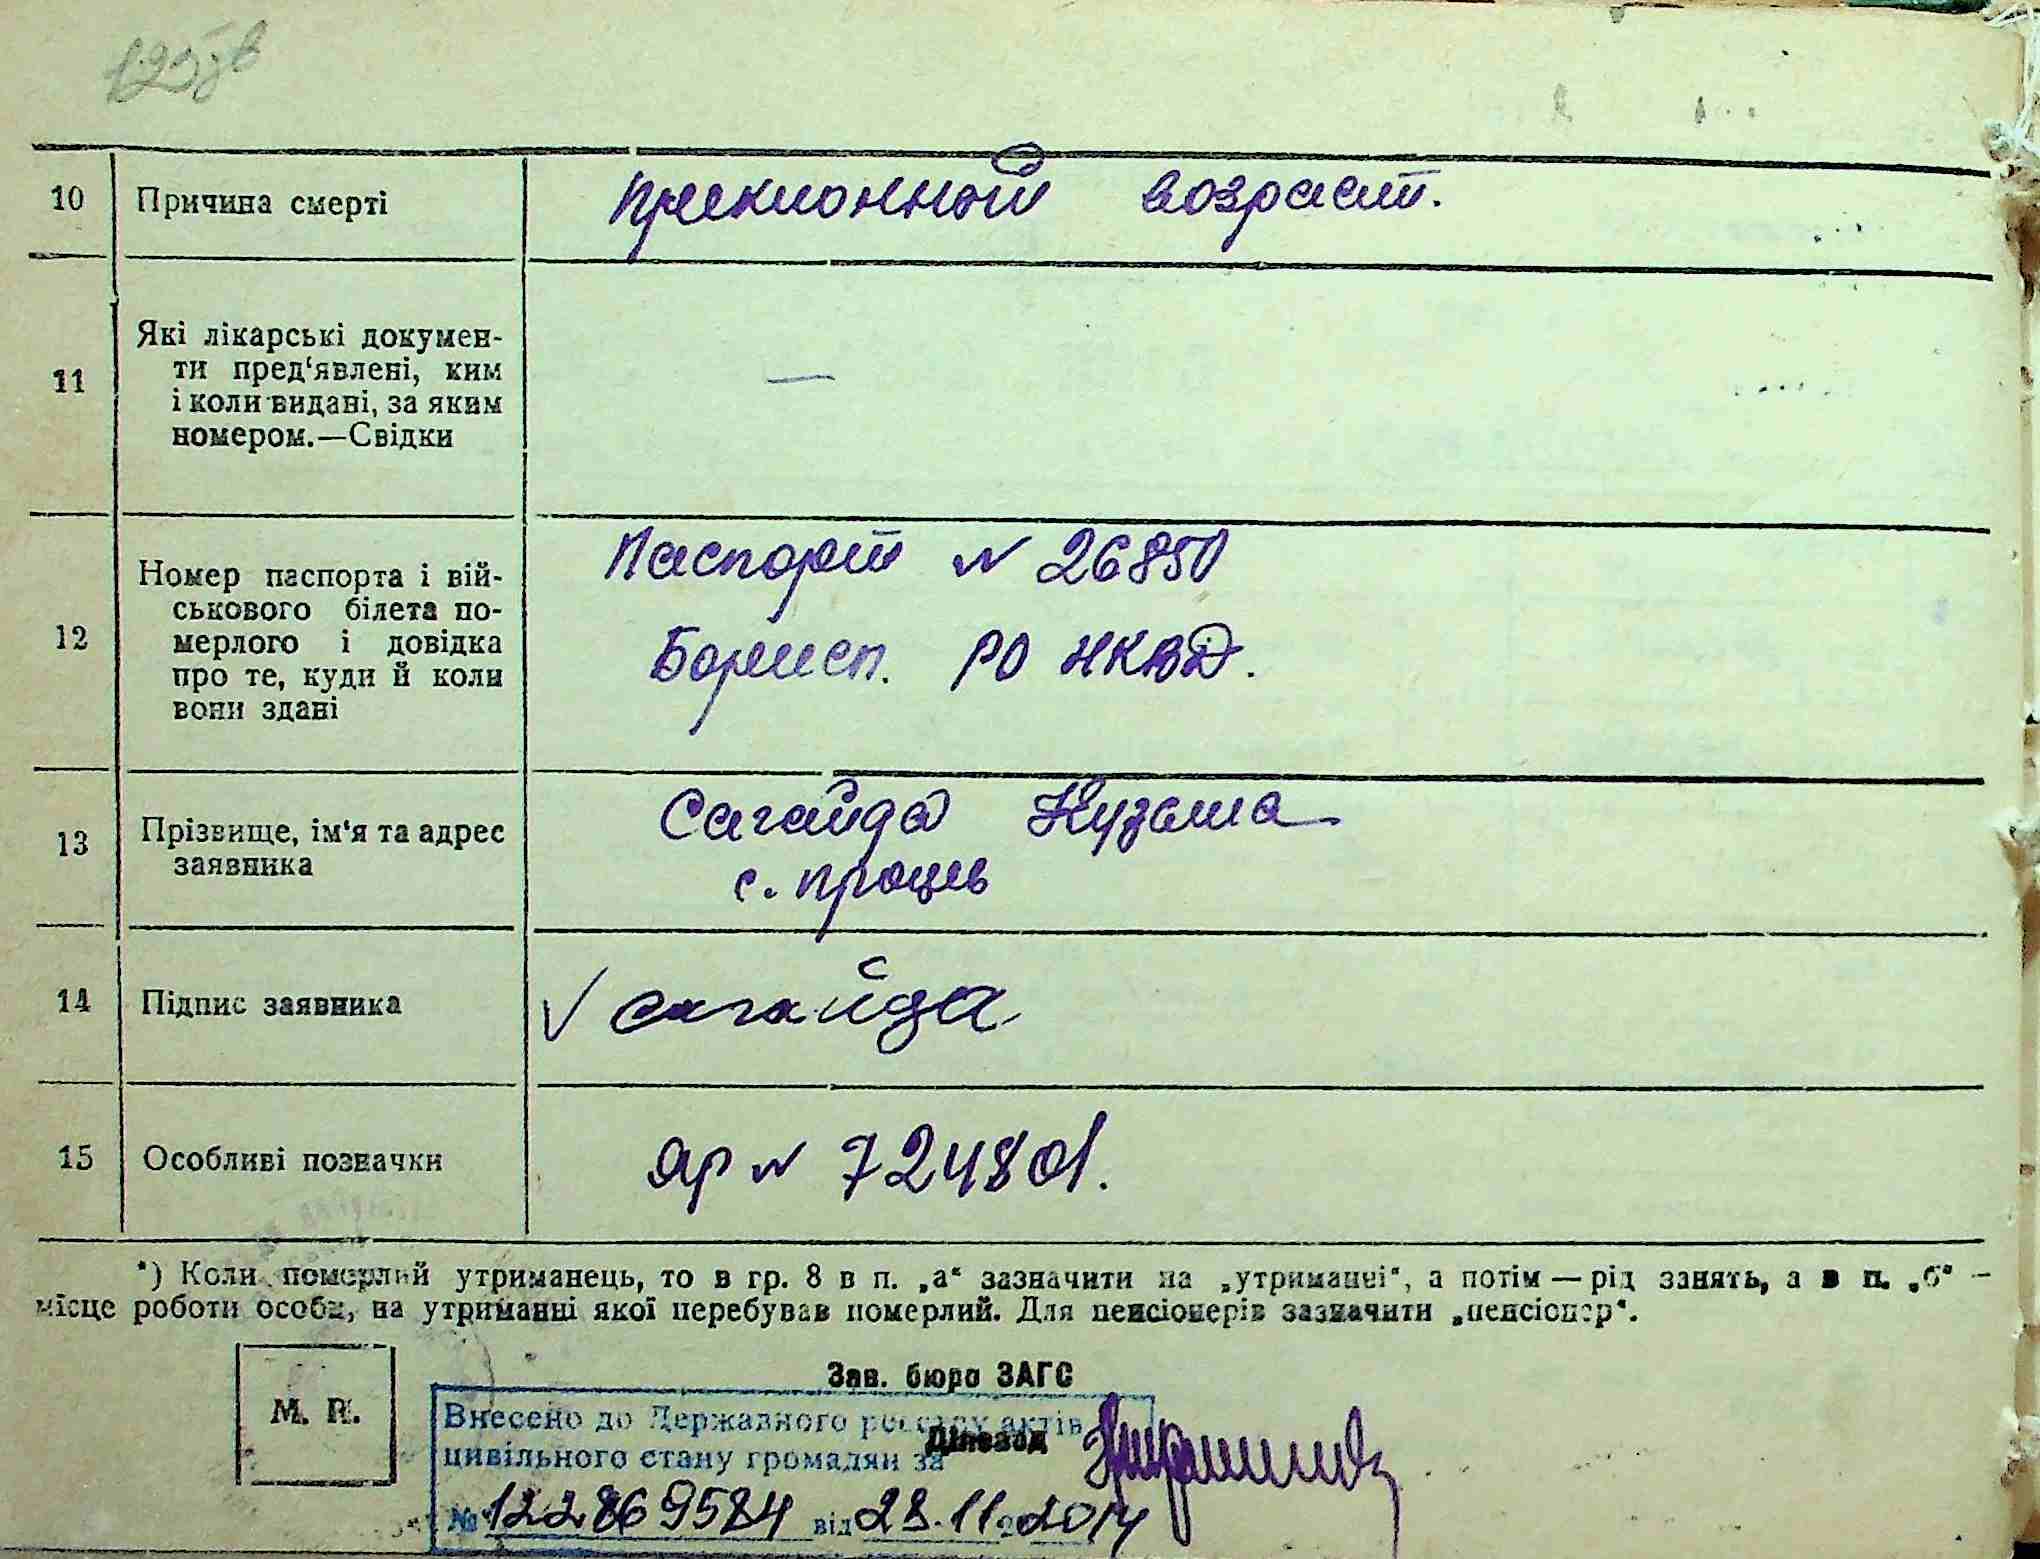 125 зв
10 Причина смерті преклонный возраст.
11 Які лікарські докумен-
ти пред‘явлені, ким
і коли видані, за яким
номером.—Свідки —
12 Номер паспорта і вій-
ськового білета по-
мерлого і довідка
про те, куди й коли
вони здані
Паспорт N 26850
Борисп. РО НКВД.
13 Прізвище, ім‘я та адрес
заявника
Сагайда Кузьма
с. Проців
14 Підпис заявника √ Сагайда
15 Особливі позначки яр N 724801.
*) Коли померлий утриманець, то в гр. 8 в п. „а“ зазначити на „утриманні“, а потім — рід занять, а в п. „б“ —
місце роботи особи, на утриманні якої перебував померлий. Для пенсіонерів зазначити „пенсіонер“.
М. П.
Зав. бюро ЗАГС
Діловод
Внесено до Державного реєстру актів
цивільного стану громадян за
№ 122869584 від 28.11.2014